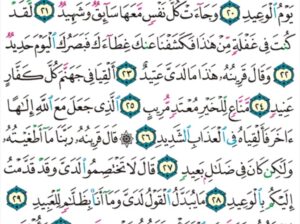 يَوْمُ الْوَعِيدِ ٢٠ وَجَاءَتْ كُلُّ نَفْسٍ مَعَهَا سَائِقٌ وَشَهِيدٌ ٢١ لَقَدْ
كُنتَ فِي غَفْلَةٍ مِنْ هَذَا فَكَشَفْنَا عَنكَ غِطَاءَكَ فَبَصَرُكَ الْيَوْمَ حَدِيدٌ
٢٢ وَقَالَ قَرِينُهُ هَذَا مَا لَدَيَّ عَتِيدٌ ٢٣ أَلْقِيَا فِي جَهَنَّمَ كُلَّ كَفَّارٍ
عَنِيدٍ ٢٤ مَنَّاعٍ لِلْخَيْرِ مُعْتَدٍ مُرِيبٍ ٢٥ الَّذِي جَعَلَ مَعَ اللَّهِ إِلَهًا
آخَرَ فَأَلْقِيَاهُ فِي الْعَذَابِ الشَّدِيدِ ٢٦ قَالَ قَرِينُهُ رَبَّنَا مَا أَطْغَيْتُهُ
وَلَكِن كَانَ فِي ضَلَالٍ بَعِيدٍ ٢٧ قَالَ لَا تَخْتَصِمُوا لَدَيَّ وَقَدْ قَدَّمْتُ
إِلَيْكُم بِالْوَعِيدِ ٢٨ مَا يُبَدَّلُ الْقَوْلُ لَدَيَّ وَمَا أَنَا بِظَلَّامٍ لِلْعَبِيدِ ٢٩